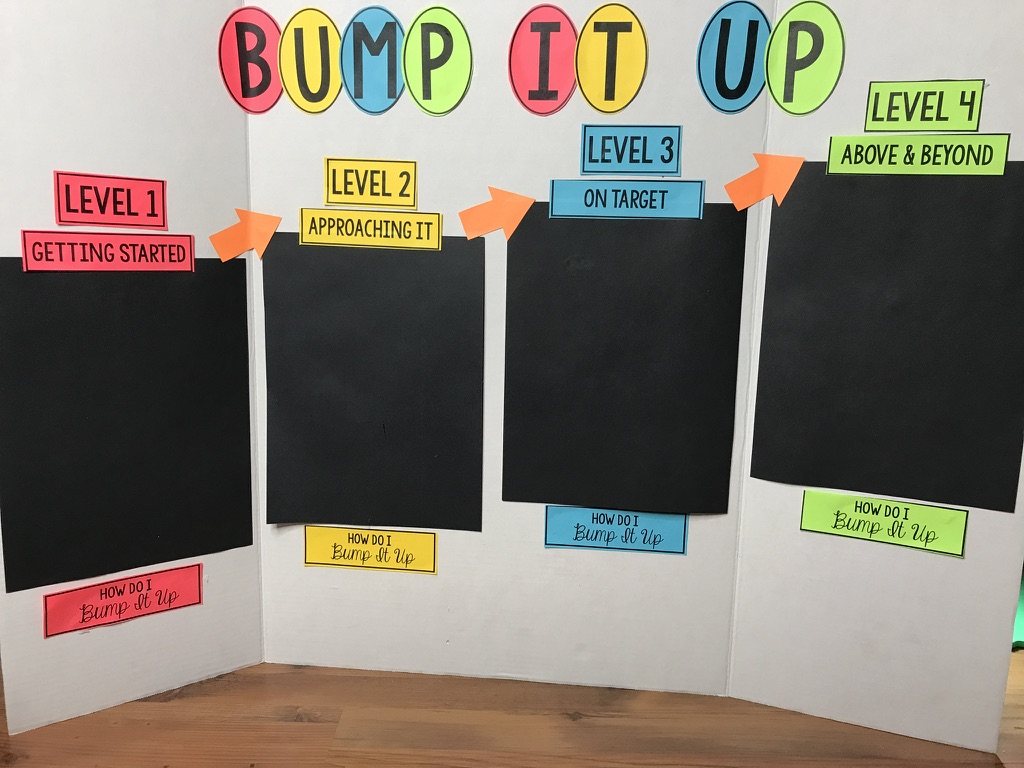 BUMP IT UP
LEVEL 1
GETTING STARTED
HOW DO I
Bump It Up
LEVEL 2
APPROACHING IT
HOW DO I
Bump It Up
LEVEL 3
ON TARGET
HOW DO I
Bump It Up
LEVEL 4
ABOVE & BEYOND
HOW DO I
Bump It Up